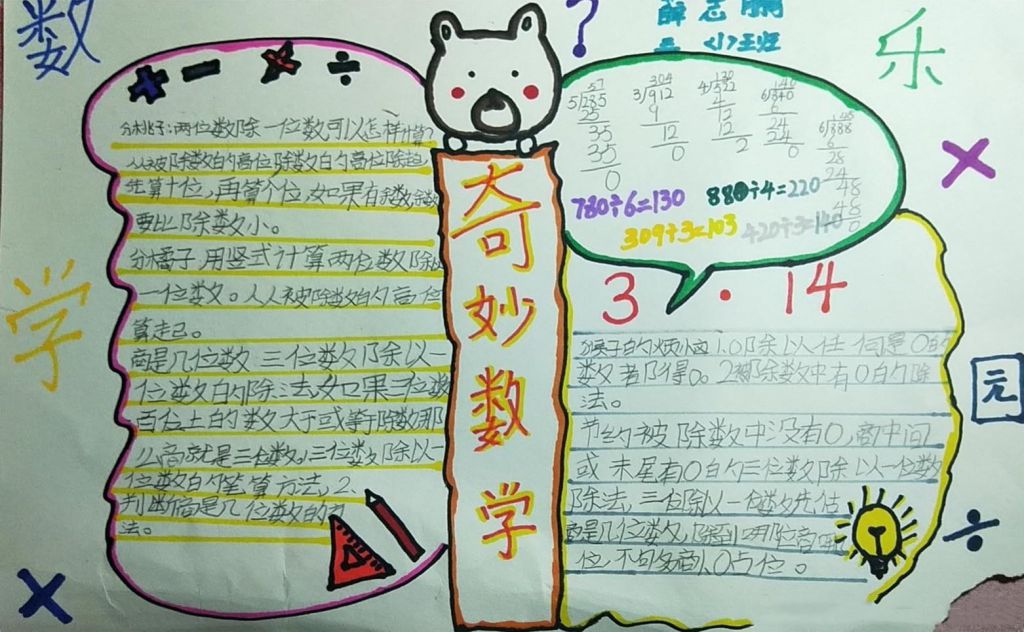 数
学
乐
？
薛志鹏
三（1）班
+ - × ÷
分桃子：两位数除一位数可以怎样计算？
从被除数的高位除数的高位除起
先算十位，再算个位，如果有余数，余数
要比除数小。
分橘子 用竖式计算两位数除以
一位数。从被除数的高位
算走已。
商是几位数 三位数除以一
位数的除法，如果三位数
百位上的数大于或等于除数那
么商就是三位数。三位数除以一
位数的笔算方法，2、
判断商是几位数的方
法。
奇妙数学
57
5/285
25
35
35
0
304
3/912
9
12
0
130
4/522
4
12
12
2
140
6/840
6
24
24
0
6/888
6
28
24
48
48
0
780÷6=130
880÷4=220
309÷3=103
420÷3=140
3.14
0除以任何是0的
数都得0。2被除数中有0的除
法。
节约被除数中没有0，商中间
或末尾有0的三位数除以一位数
除法，三位除以一位数先估
商是几位数，除到哪位商
位 不够商1.0占位。
×
元
÷
×